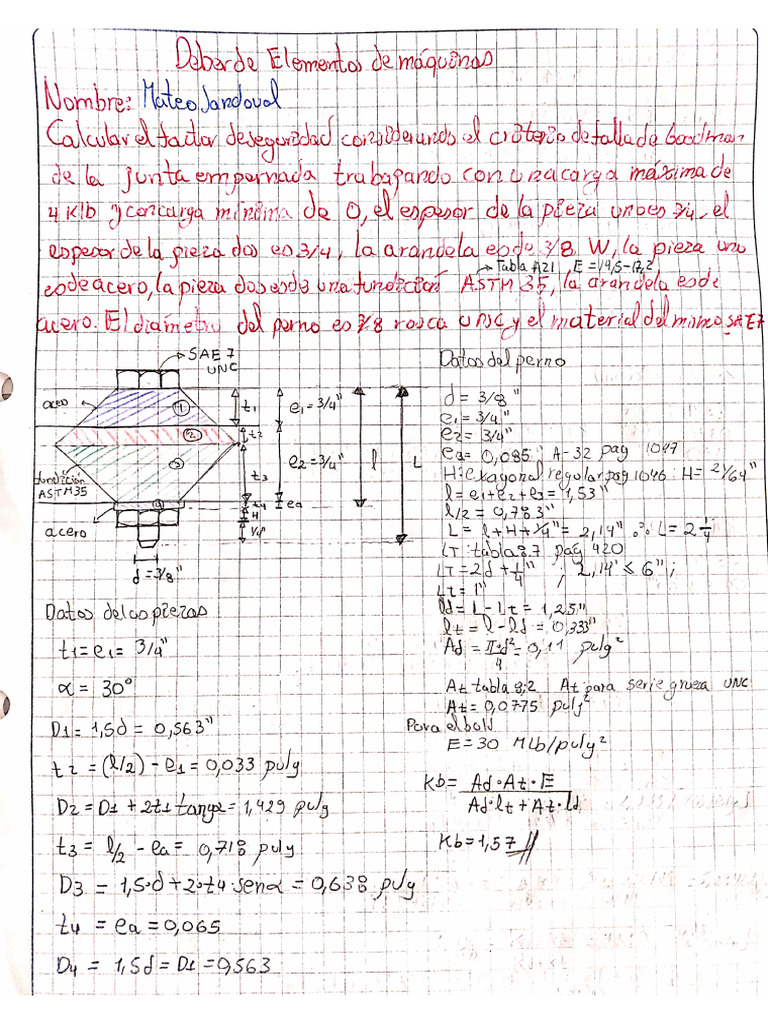 Deber de Elementos de máquinas
Nombre: Mateo Sandoval
Calcular el factor de seguridad considerando el criterio de falla de Goodman
de la junta empernada trabajando con una carga máxima de
4 Klb y con carga mínima de 0, el espesor de la pieza uno es 3/4, el
espesor de la pieza dos es 3/4, la arandela es de 3/8 W, la pieza uno
→ Tabla A21 E = 14,5-17,2
es de acero, la pieza dos es de una fundición ASTM 35, la arandela es de
acero. El diámetro del perno es 3/8 rosca UNC y el material del mismo SAE7
→ SAE 7
UNC
acero
1
t1
e1 = 3/4"
2
t2
3
t3
e2 = 3/4"
l
L
fundición
ASTM 35
4
t4
ea
H
1/4"
acero
d = 3/8"
Datos del perno
d = 3/8"
e1 = 3/4"
e2 = 3/4"
ea = 0,065 A-32 pag 1047
H: Hexagonal regular pag 1046: H = 21/64"
l = e1+e2+e3 = 1,53"
l/2 = 0,783"
L = l+H+1/4" = 2,14" ∴ L = 2 1/4
LT: tabla 8.7 pag 420
LT = 2d + 1/4" ; 2,14" ≤ 6" ;
Lt = 1"
ld = L - Lt = 1,25"
lt = l - ld = 0,333"
Ad = π·d²/4 = 0,11 pulg²
At tabla 8.2 At para serie gruesa UNC
At = 0,0775 pulg²
Para el bolt
E = 30 Mlb/pulg²
Kb = Ad·At·E / Ad·lt + At·ld
Kb = 1,57
Datos de las piezas
t1 = e1 = 3/4"
α = 30°
D1 = 1,5d = 0,563"
t2 = (l/2) - e1 = 0,033 pulg
D2 = D1 + 2t1 tang α = 1,429 pulg
t3 = l/2 - ea = 0,718 pulg
D3 = 1,5·d + 2·t4·sen α = 0,638 pulg
t4 = ea = 0,065
D4 = 1,5d = D1 = 0,563